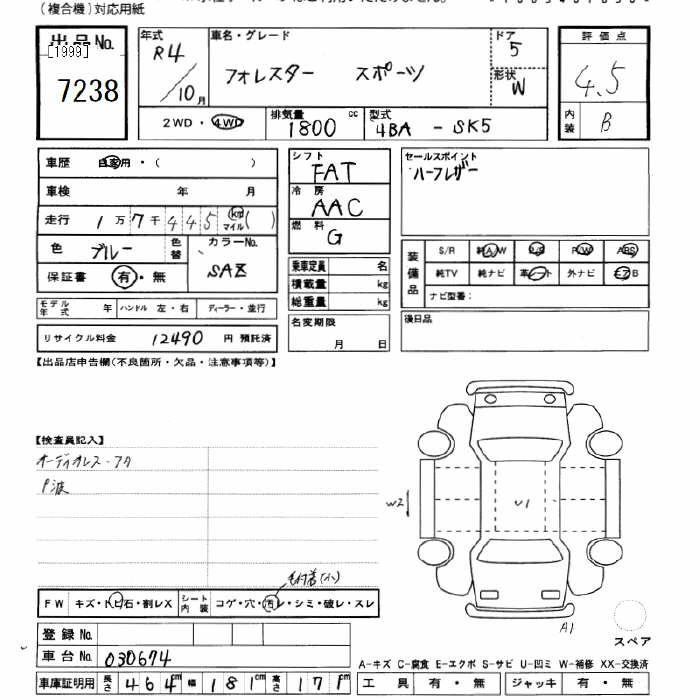 (複合機)対応用紙
出品No.
[1999]
7238
年式
R4/10月
車名・グレード
フォレスター スポーツ
ドア
5
形状
W
評価点
4.5
内装
B
2WD・4WD
排気量
1800 cc
型式
4BA - SK5
車歴 自家用・( )
車検 年 月
走行 1万7千445 km マイル( )
色 ブルー 色替
カラーNo.
SAZ
保証書 有・無
モデル年式 年 ハンドル 左・右 ディーラー・並行
リサイクル料金 12490 円 預託済
シフト
FAT
冷房
AAC
燃料
G
乗車定員 名
積載量 kg
総重量 kg
名変期限
月 日
セールスポイント
ハーフレザー
装備品
S/R 純A/W P/S P/W ABS
純TV 純ナビ 革シート 外ナビ エアB
ナビ型番:
後日品
【出品店申告欄(不良箇所・欠品・注意事項等)】
【検査員記入】
オーディオレス・フタ
W2
U1
A1
スペア
FW キズ・トビ石・割レX
シート内装 コゲ・穴・汚レ・シミ・破レ・スレ
登録No.
車台No. 030674
車庫証明用 長さ 464cm 幅 181cm 高さ 171cm
A-キズ C-腐食 E-エクボ S-サビ U-凹ミ W-補修 XX-交換済
工具 有・無 ジャッキ 有・無